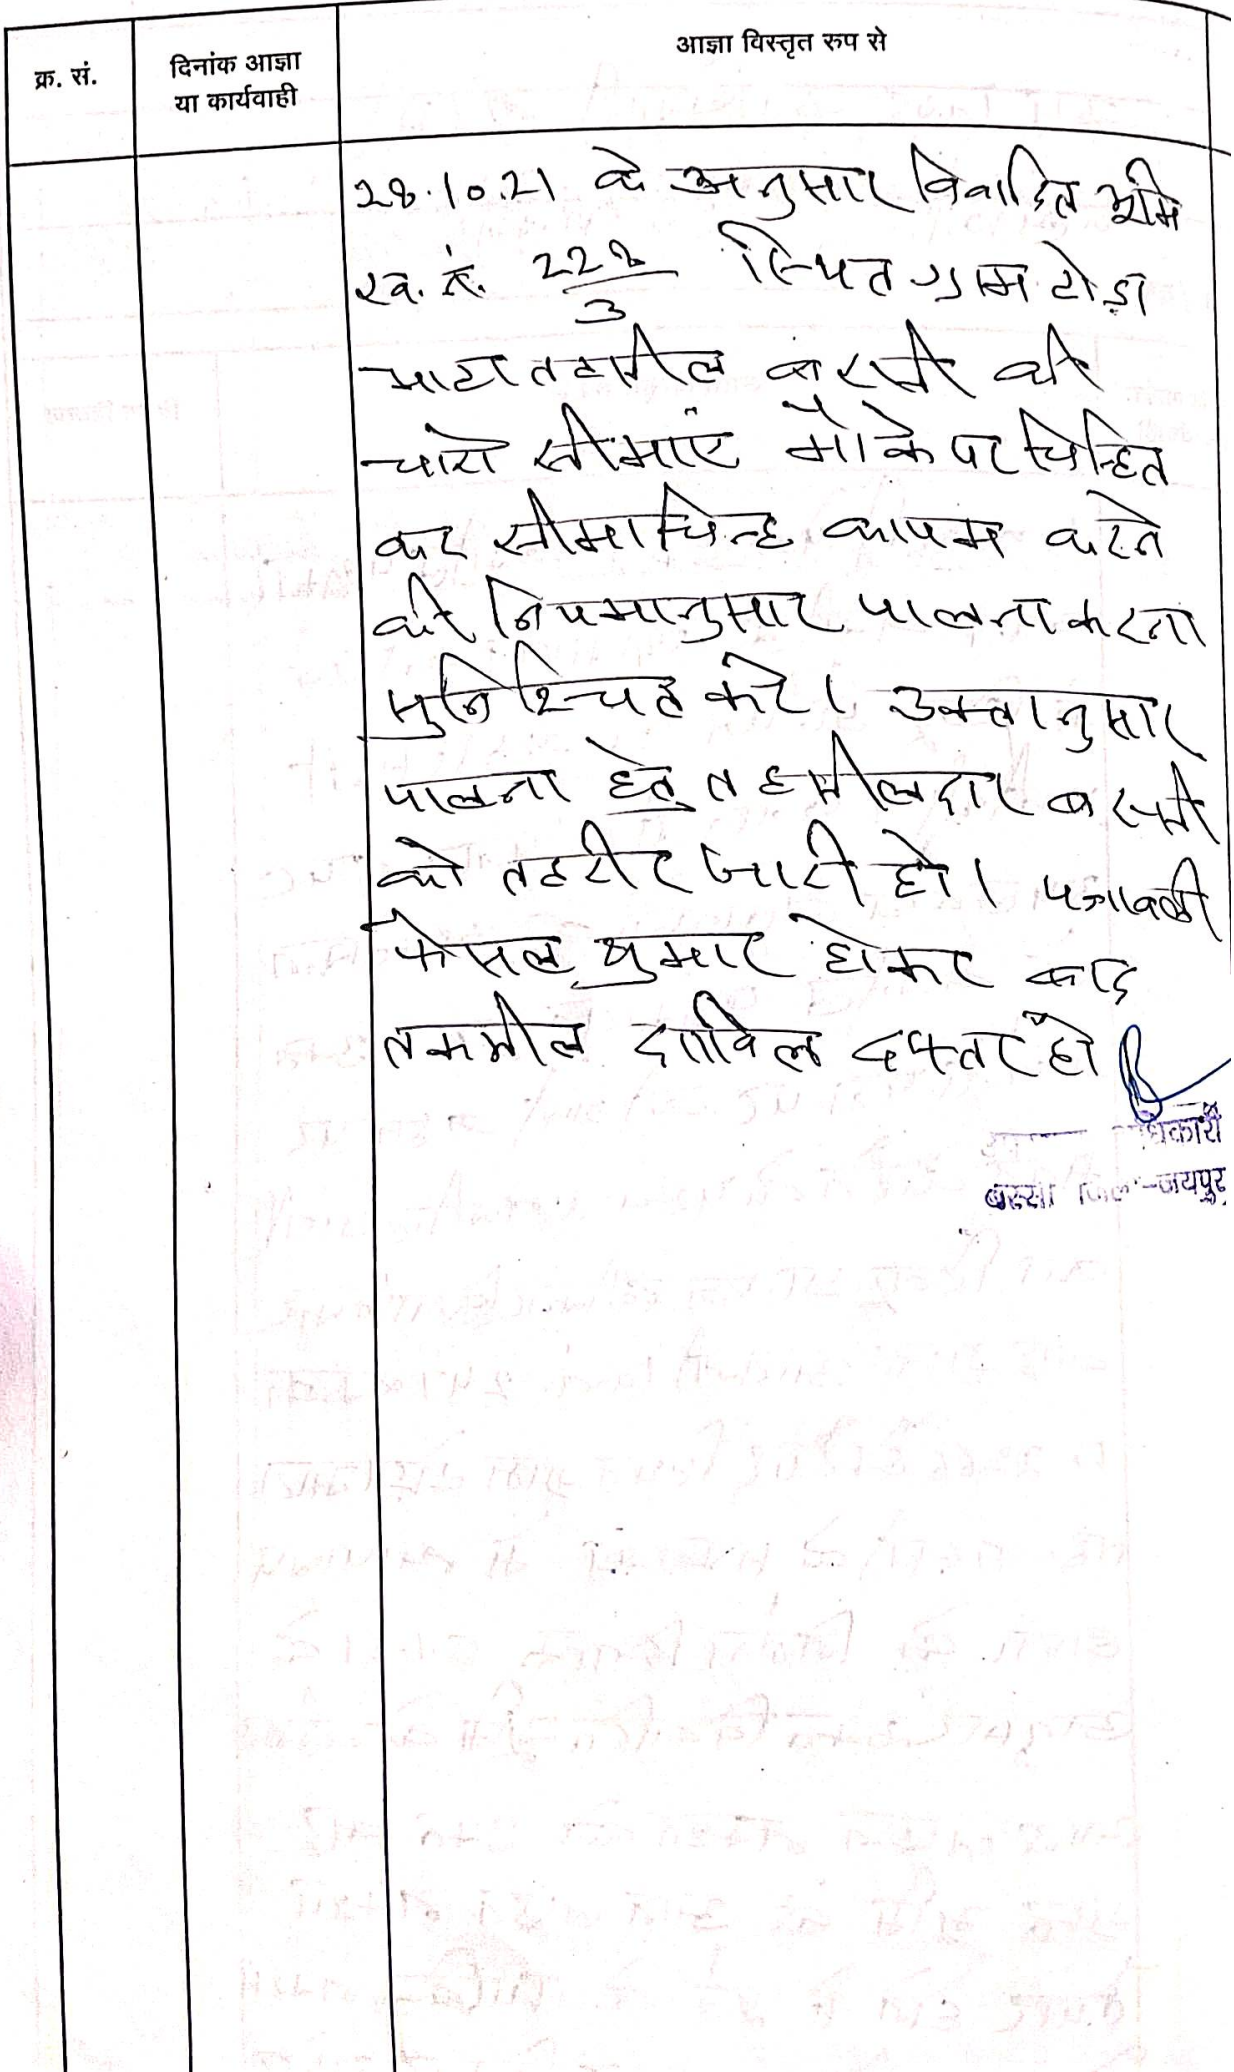 क्र. सं.
दिनांक आज्ञा
या कार्यवाही
आज्ञा विस्तृत रुप से
28.10.21 के अनुसार विवादित भूमि
ख. नं. 228/3 स्थित ग्राम टोडा
भाटा तहसील बस्सी की
चारो सीमाएं मौके पर चिन्हित
कर सीमाचिन्ह कायम करने
की नियमानुसार पालना करना
सुनिश्चित करे। उक्तानुसार
पालना हेतु तहसीलदार बस्सी
को तहरीर जारी हो। पत्रावली
फैसल शुमार होकर बाद
तकमील दाखिल दफ्तर हो
बस्सी जिला-जयपुर